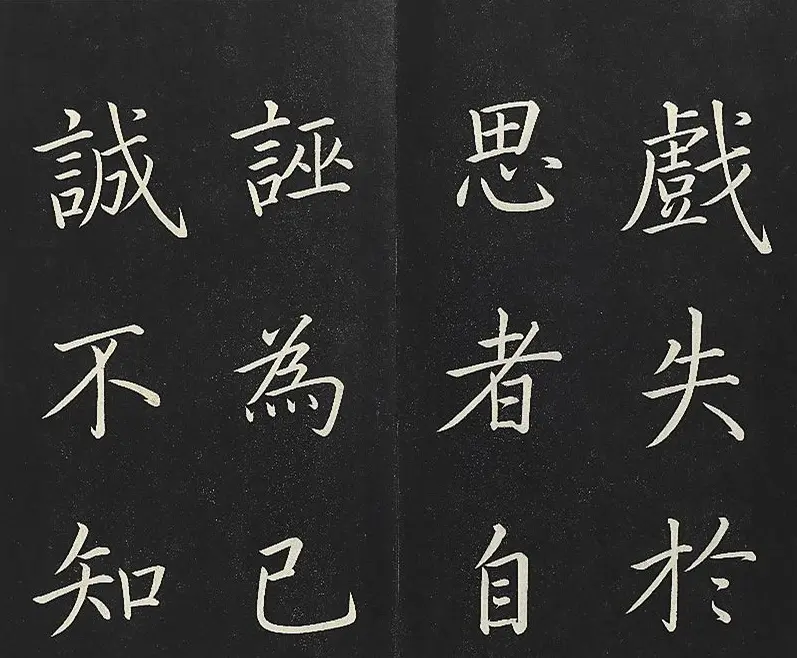 戲失於
思者自
誣為己
誠不知